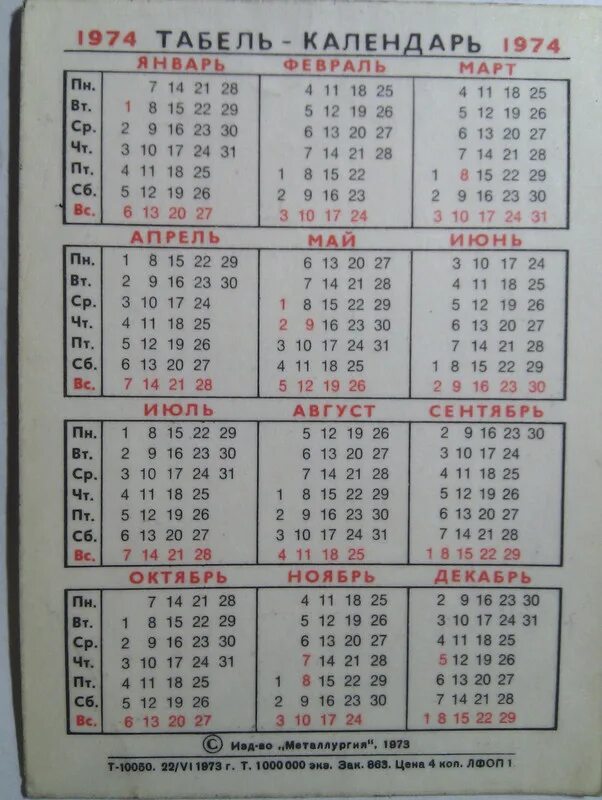 1974 ТАБЕЛЬ - КАЛЕНДАРЬ 1974
ЯНВАРЬ ФЕВРАЛЬ МАРТ
Пн. 7 14 21 28 4 11 18 25 4 11 18 25
Вт. 1 8 15 22 29 5 12 19 26 5 12 19 26
Ср. 2 9 16 23 30 6 13 20 27 6 13 20 27
Чт. 3 10 17 24 31 7 14 21 28 7 14 21 28
Пт. 4 11 18 25 1 8 15 22 1 8 15 22 29
Сб. 5 12 19 26 2 9 16 23 2 9 16 23 30
Вс. 6 13 20 27 3 10 17 24 3 10 17 24 31
АПРЕЛЬ МАЙ ИЮНЬ
Пн. 1 8 15 22 29 6 13 20 27 3 10 17 24
Вт. 2 9 16 23 30 7 14 21 28 4 11 18 25
Ср. 3 10 17 24 1 8 15 22 29 5 12 19 26
Чт. 4 11 18 25 2 9 16 23 30 6 13 20 27
Пт. 5 12 19 26 3 10 17 24 31 7 14 21 28
Сб. 6 13 20 27 4 11 18 25 1 8 15 22 29
Вс. 7 14 21 28 5 12 19 26 2 9 16 23 30
ИЮЛЬ АВГУСТ СЕНТЯБРЬ
Пн. 1 8 15 22 29 5 12 19 26 2 9 16 23 30
Вт. 2 9 16 23 30 6 13 20 27 3 10 17 24
Ср. 3 10 17 24 31 7 14 21 28 4 11 18 25
Чт. 4 11 18 25 1 8 15 22 29 5 12 19 26
Пт. 5 12 19 26 2 9 16 23 30 6 13 20 27
Сб. 6 13 20 27 3 10 17 24 31 7 14 21 28
Вс. 7 14 21 28 4 11 18 25 1 8 15 22 29
ОКТЯБРЬ НОЯБРЬ ДЕКАБРЬ
Пн. 7 14 21 28 4 11 18 25 2 9 16 23 30
Вт. 1 8 15 22 29 5 12 19 26 3 10 17 24 31
Ср. 2 9 16 23 30 6 13 20 27 4 11 18 25
Чт. 3 10 17 24 31 7 14 21 28 5 12 19 26
Пт. 4 11 18 25 1 8 15 22 29 6 13 20 27
Сб. 5 12 19 26 2 9 16 23 30 7 14 21 28
Вс. 6 13 20 27 3 10 17 24 1 8 15 22 29
© Изд-во „Металлургия", 1973
Т-10050. 22/VI 1973 г. Т. 1000000 экз. Зак. 863. Цена 4 коп. ЛФОП 1